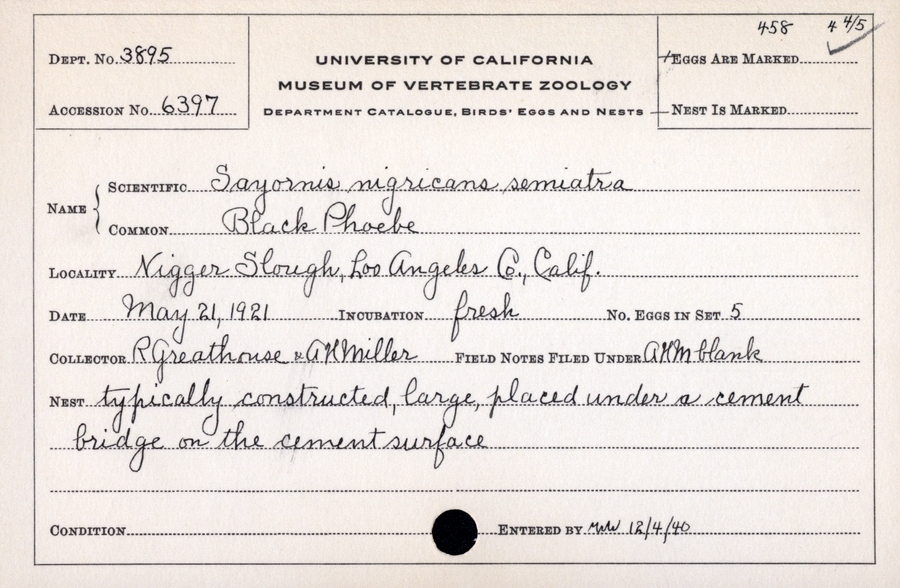 458 4 4/5
Dept. No. 3895
UNIVERSITY OF CALIFORNIA
Eggs Are Marked
MUSEUM OF VERTEBRATE ZOOLOGY
Accession No. 6397
Department Catalogue, Birds' Eggs and Nests
Nest Is Marked
Name { Scientific Sayornis nigricans semiatra
Common Black Phoebe
Locality Nigger Slough, Los Angeles Co., Calif.
Date May 21, 1921 Incubation fresh No. Eggs in Set 5
Collector R Greathouse & AHMiller Field Notes Filed Under AHM blank
Nest typically constructed, large, placed under a cement
bridge on the cement surface
Condition Entered by 12/4/40